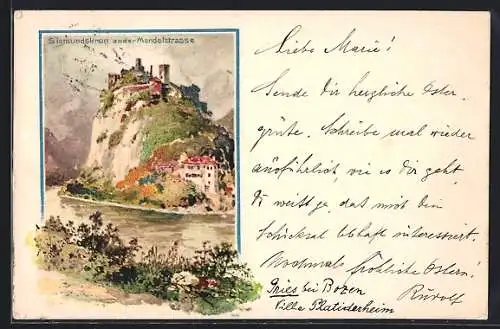 Sigmundskron an der Mendelstrasse
Liebe Marie!
Sende dir herzliche Oster-
grüße. Schreibe mal wieder
ausführlich, wie es dir geht
Du weißt ja, daß mich dein
Schicksal lebhaft interessiert.
Nochmals fröhliche Ostern!
Rudolf
Gries bei Bozen
Villa